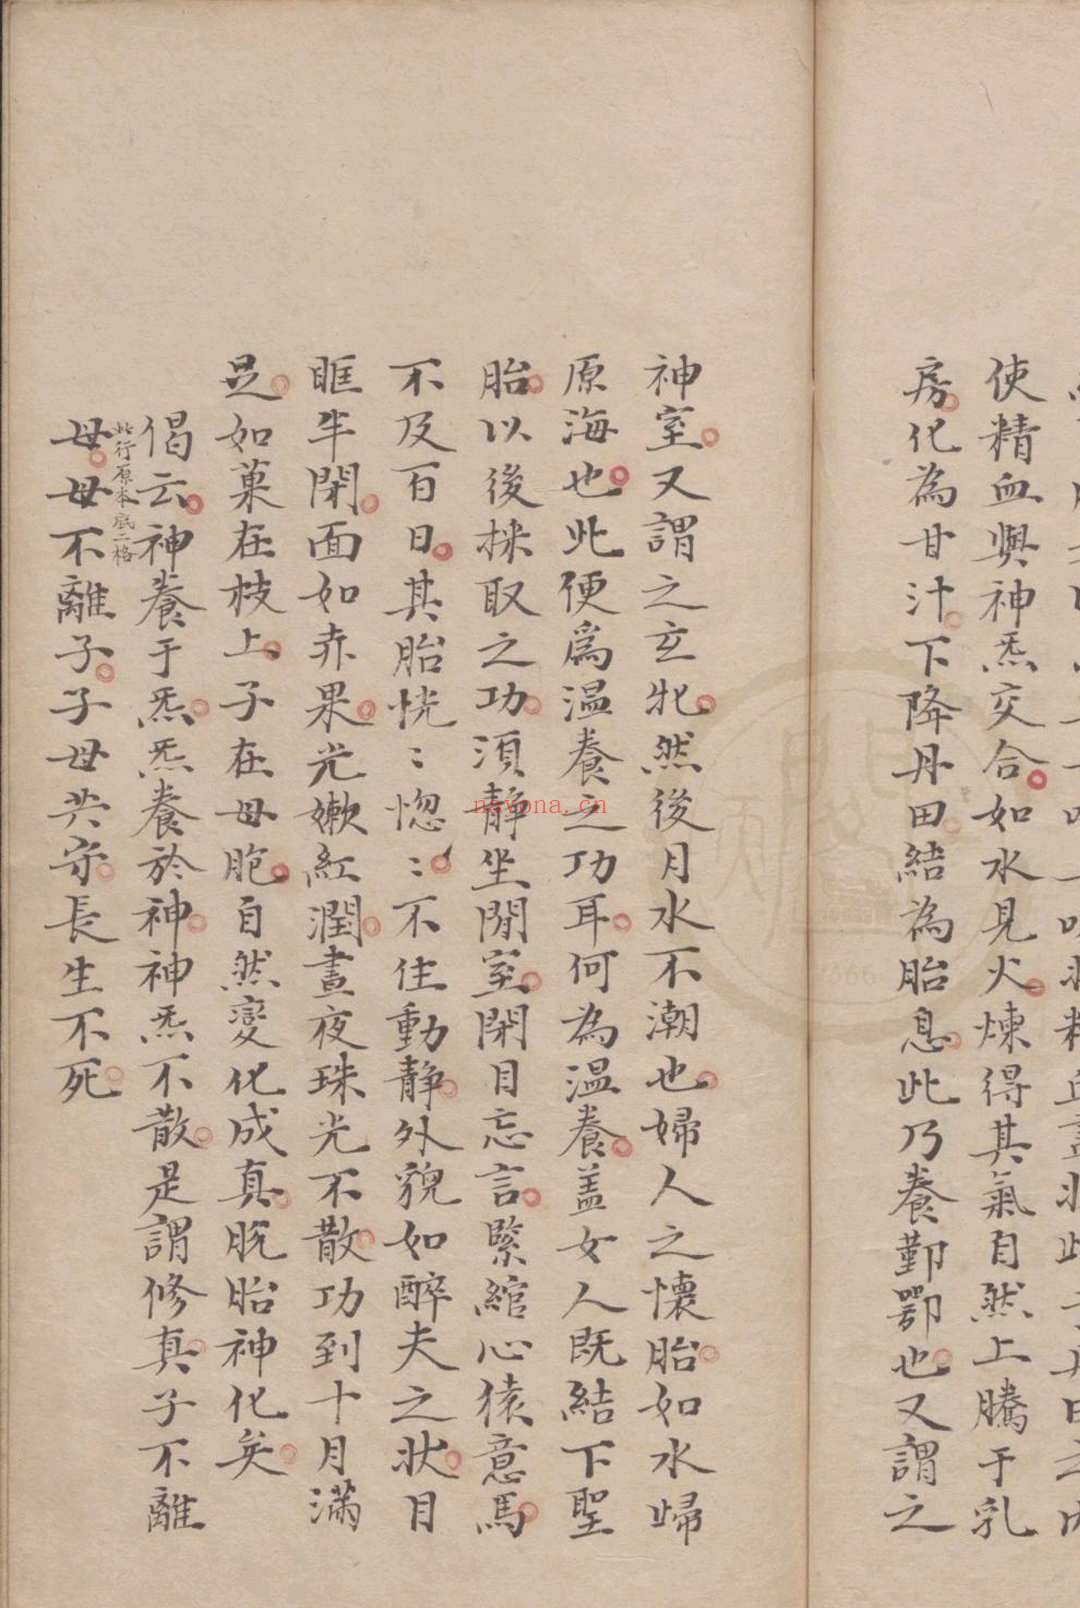 使精血與神炁交合。如水見火。煉得其氣自然上騰于乳
房。化為甘汁。下降丹田。結為胎息。此乃養鄞鄂也。又謂之
神室。又謂之玄牝。然後月水不潮也。婦人之懷胎。如水歸
原海也。此便爲温養之功耳。何為温養。盖女人既結下聖
胎。以後採取之功。湏静坐閒室。閉目忘言。緊綰心猿意馬。
不及百日。其胎恍〻惚〻。不住動静。外貌如醉夫之狀。目
眶半閉。面如赤果。光嫩紅潤。晝夜珠光不散。功到十月滿
足。如菓在枝上。子在母胞。自然變化成真。脱胎神化矣。
偈云。神養于炁。炁養於神。神炁不散。是謂修真。子不離
此行原本底二格
母。母不離子。子母共守。長生不死。
nayona.cn